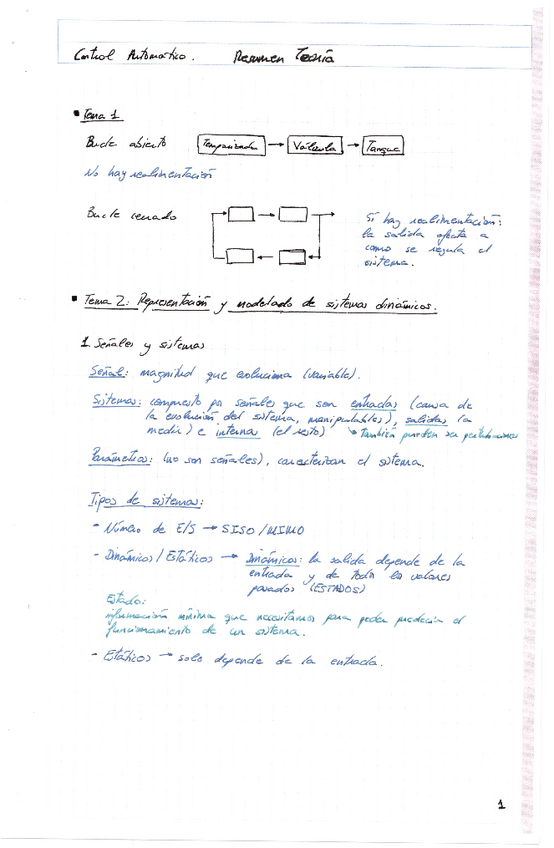 Control Automático. Resumen Teoría
▪ Tema 1
Bucle abierto Temporizador → Válvula → Tanque
No hay realimentación
Bucle cerrado
Sí hay realimentación:
la salida afecta a
como se regula el
sistema.
▪ Tema 2: Representación y modelado de sistemas dinámicos.
1. Señales y sistemas
Señal: magnitud que evoluciona (variable).
Sistema: compuesto por señales que son entradas (causa de
la evolución del sistema, manipulables), salidas (a
medir) e internas (el resto) → También pueden ser perturbaciones
Parámetros: (no son señales), caracterizan el sistema.
Tipos de sistemas:
- Número de E/S → SISO/MIMO
- Dinámicos/Estáticos → Dinámicos: la salida depende de la
entrada y de todos los valores
pasados (ESTADOS)
Estado:
información mínima que necesitamos para poder predecir el
funcionamiento de un sistema.
- Estáticos → solo depende de la entrada.
1